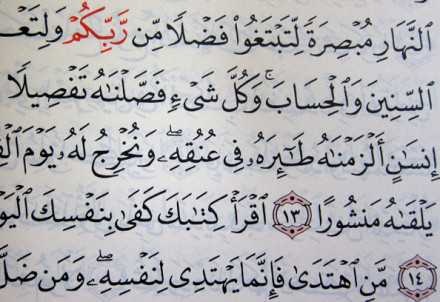 ٱلنَّهَارِ مُبْصِرَةً لِّتَبْتَغُوا۟ فَضْلًا مِّن رَّبِّكُمْ وَلِتَعْـ
ٱلسِّنِينَ وَٱلْحِسَابَ ۚ وَكُلَّ شَىْءٍ فَصَّلْنَٰهُ تَفْصِيلًا
إِنسَٰنٍ أَلْزَمْنَٰهُ طَٰٓئِرَهُۥ فِى عُنُقِهِۦ ۖ وَنُخْرِجُ لَهُۥ يَوْمَ ٱلْقِـ
يَلْقَىٰهُ مَنشُورًا ١٣ ٱقْرَأْ كِتَٰبَكَ كَفَىٰ بِنَفْسِكَ ٱلْيَوْ
١٤ مَّنِ ٱهْتَدَىٰ فَإِنَّمَا يَهْتَدِى لِنَفْسِهِۦ ۖ وَمَن ضَلَّ